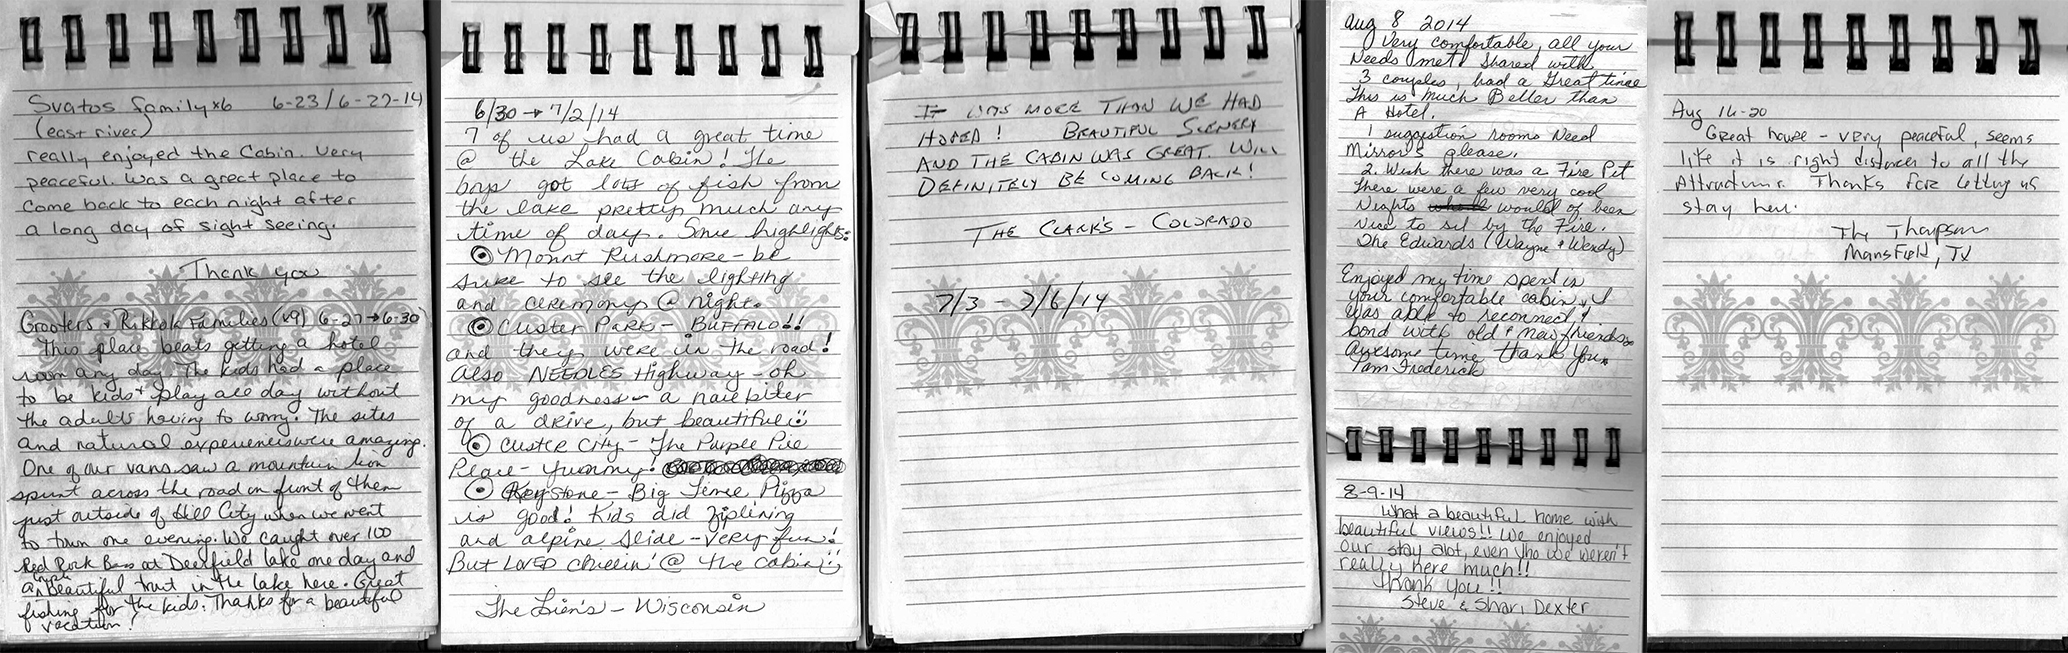 Svatos family x6 6-23/6-27-14
(east river)
really enjoyed the Cabin. Very
peaceful. Was a great place to
come back to each night after
a long day of sight seeing.
Thank you
Grooters & Rikkok Families (x9) 6-27→6-30
This place beats getting a hotel
room any day. The kids had a place
to be kids & play all day without
the adults having to worry. The sites
and natural experiences were amazing.
One of our vans saw a mountain lion
sprint across the road in front of them
just outside of Hill City when we went
to town one evening. We caught over 100
Red Rock Bass at Deerfield lake one day and
a beautiful trout in the lake here. Great
fishing for the kids. Thanks for a beautiful
vacation!
6/30 → 7/2/14
7 of us had a great time
@ the Lake Cabin! The
boys got lots of fish from
the lake pretty much any
time of day. Some highlights:
Mount Rushmore - be
sure to see the lighting
and ceremony @ night.
Custer Park - BUFFALO!!
and they were in the road!
Also NEEDLES Highway - oh
my goodness - a nail biter
of a drive, but beautiful :)
Custer City - The Purple Pie
Place - yummy!
Keystone - Big Time Pizza
is good! Kids did ziplining
and alpine slide - very fun!
But LOVED chillin' @ the cabin :)
The Lien's - Wisconsin
IT WAS MORE THAN WE HAD
HOPED! BEAUTIFUL SCENERY
AND THE CABIN WAS GREAT. WILL
DEFINITELY BE COMING BACK!
THE CLARK'S - COLORADO
7/3 - 7/6/14
Aug 8 2014
Very comfortable, all your
Needs met. Shared with
3 couples, had a Great time
This is Much Better than
A Hotel.
1 suggestion rooms Need
Mirrors please.
2. Wish there was a Fire Pit
There were a few very cool
Nights would of been
nice to sit by the Fire.
The Edwards (Wayne & Wendy)
Enjoyed my time spent in
your comfortable cabin & I
was able to reconnect &
bond with old & new friends.
Awesome time thank you.
Pam Frederick
8-9-14
What a beautiful home with
beautiful views!! We enjoyed
our stay alot, even tho we weren't
really here much!!
Thank you!!
Steve & Shari Dexter
Aug 16-20
Great house - very peaceful, seems
like it is right distances to all the
Attractions. Thanks for letting us
stay here.
The Thompson
Mansfield, TX